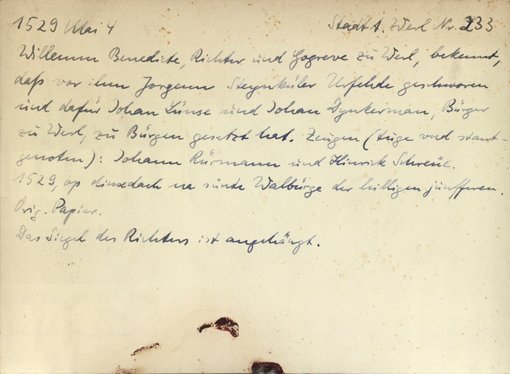 1529 Mai 4 Stadt A. Werl Nr. 233
Willemm Benedicte, Richter und Gogreve zu Werl, bekennt,
daß vor ihm Jorgenn Steynküler Urfehde geschworen
und dafür Johan Lünse und Johan Dynkerman, Bürger
zu Werl, zu Bürgen gesetzt hat. Zeugen (tüge und stant-
genoten): Johann Rürmann und Hinrik
1529, op dinxdach na sunte Walbürge der hilligen junfferen.
Orig. Papier.
Das Siegel des Richters ist angehängt.